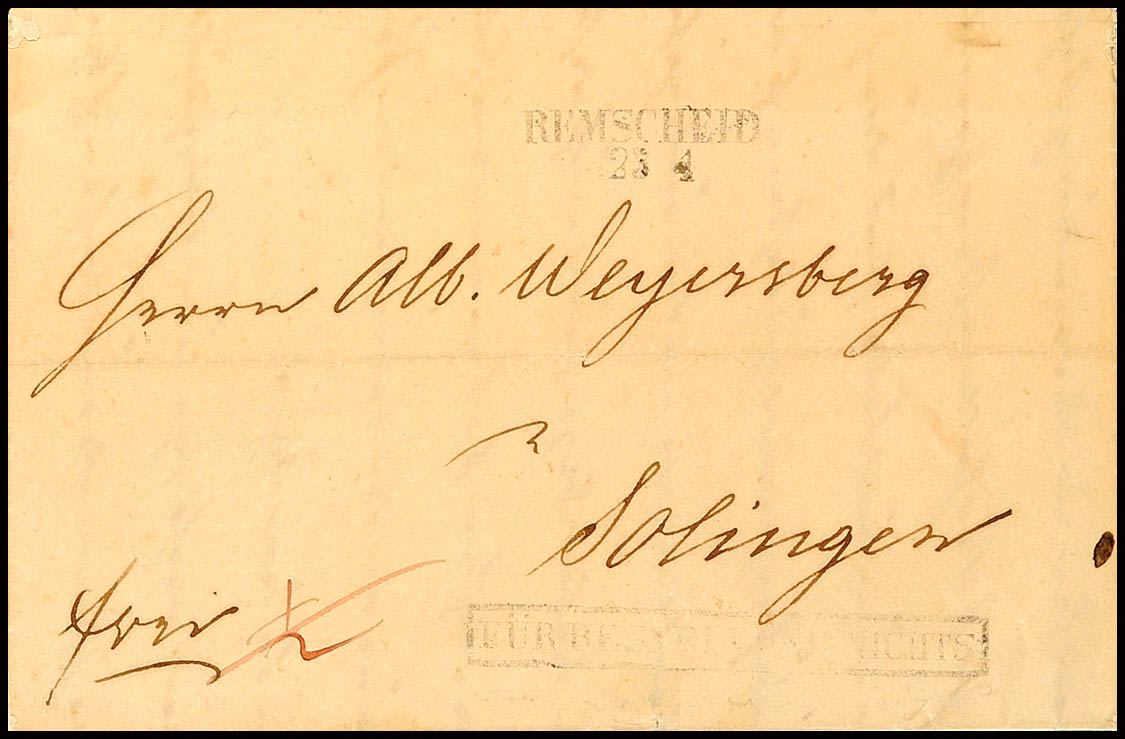 REMSCHEID
23 4
Herrn Alb. Weyersberg
Solingen
frei
FÜR NICHTS